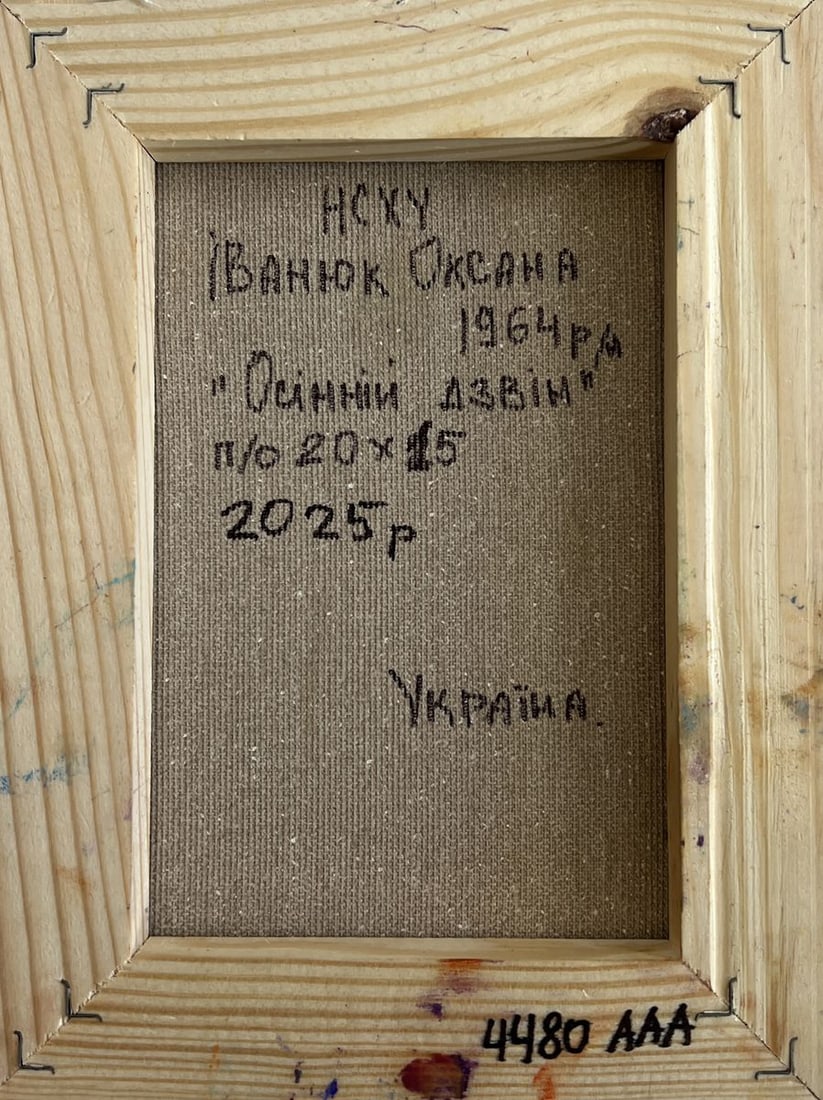 НСХУ
Іванюк Оксана
1964 р/н
"Осінній дзвін"
п/о 20 х 15
2025 р
Україна.
4480 AAA